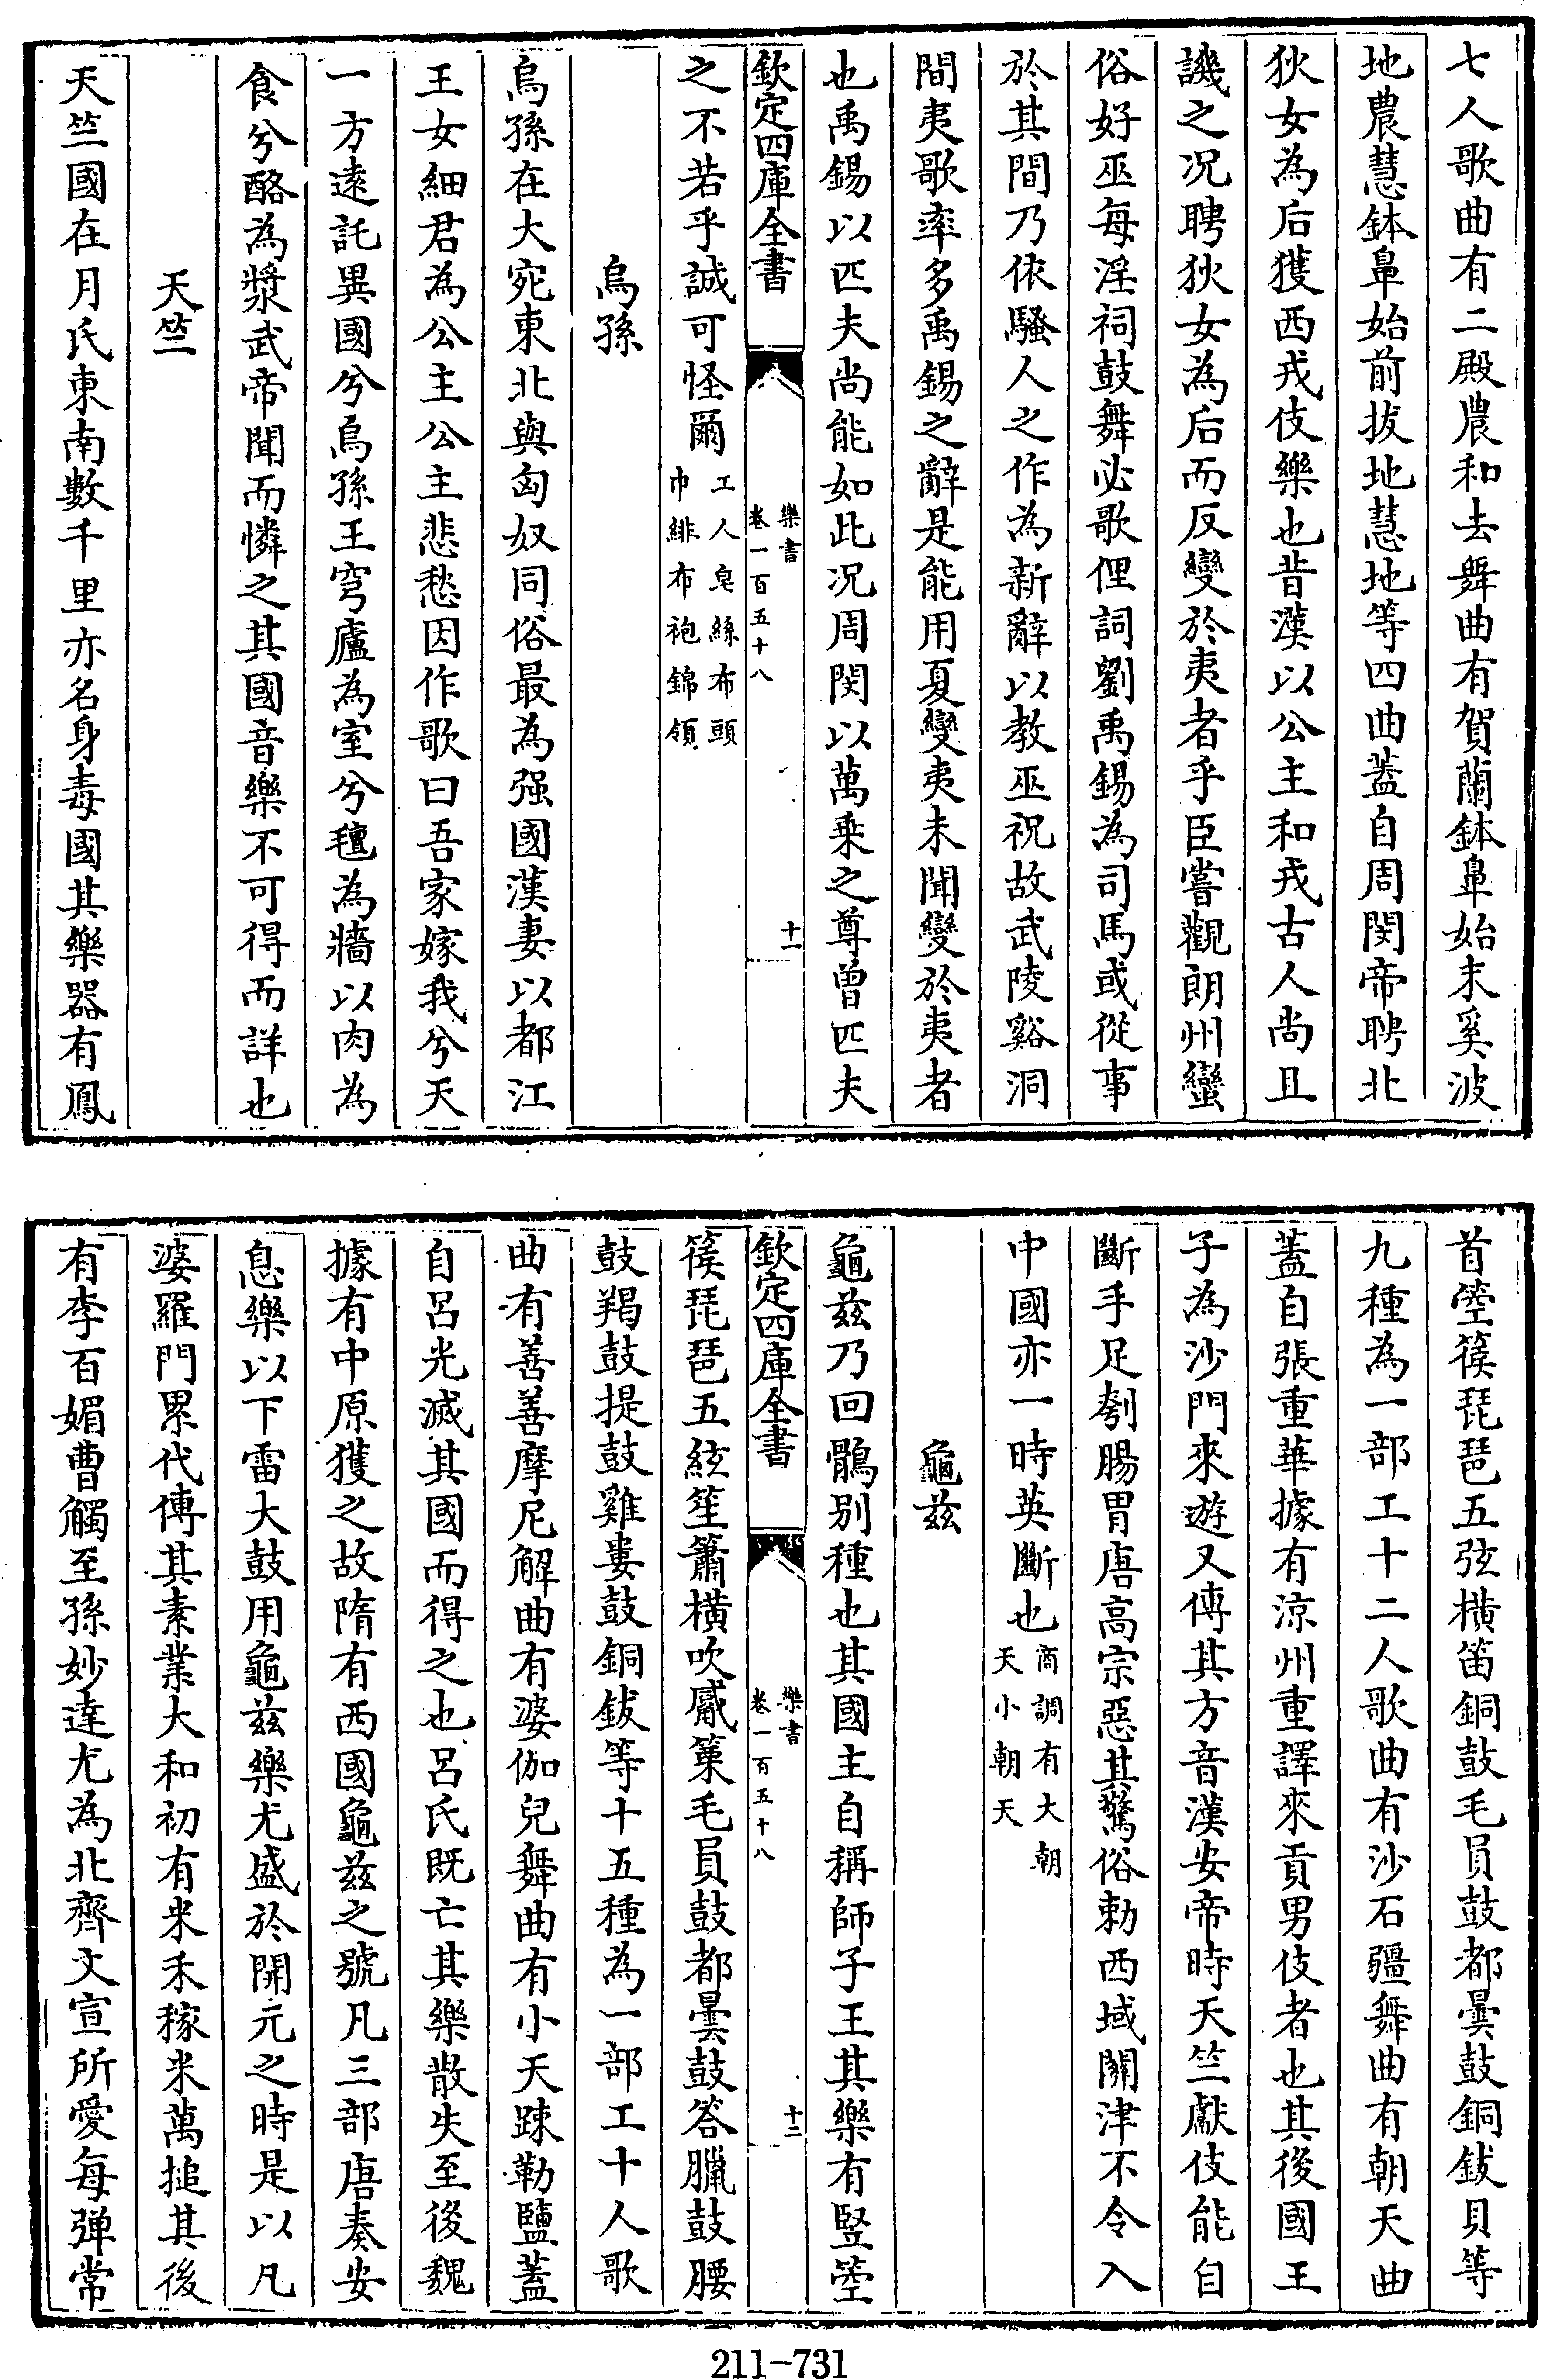 七人歌曲有二殿農和去舞曲有賀蘭鉢鼻始末奚波
地農慧鉢鼻始前拔地慧地等四曲蓋自周閔帝聘北
狄女為后獲西戎伎樂也昔漢以公主和戎古人尚且
譏之况聘狄女為后而反變於夷者乎臣嘗觀朗州蠻
俗好巫每淫祠鼓舞必歌俚詞劉禹錫為司馬或從事
於其間乃依騷人之作為新辭以教巫祝故武陵谿洞
間夷歌率多禹錫之辭是能用夏變夷未聞變於夷者
也禹錫以匹夫尚能如此况周閔以萬乗之尊曾匹夫
欽定四庫全書
樂書
卷一百五十八
十一
之不若乎誠可怪爾
工人皂絲布頭
巾緋布袍錦領
烏孫
烏孫在大宛東北與匈奴同俗最為强國漢妻以都江
王女細君為公主公主悲愁因作歌曰吾家嫁我兮天
一方遠託異國兮烏孫王穹廬為室兮氊為牆以肉為
食兮酪為漿武帝聞而憐之其國音樂不可得而詳也
天竺
天竺國在月氏東南數千里亦名身毒國其樂器有鳳
首箜篌琵琶五弦橫笛銅鼓毛員鼓都曇鼓銅鈸貝等
九種為一部工十二人歌曲有沙石疆舞曲有朝天曲
蓋自張重華據有涼州重譯來貢男伎者也其後國王
子為沙門來遊又傳其方音漢安帝時天竺獻伎能自
斷手足刳腸胃唐高宗惡其驚俗勅西域關津不令入
中國亦一時英斷也
商調有大朝
天小朝天
龜兹
龜兹乃回鶻别種也其國主自稱師子王其樂有竪箜
欽定四庫全書
樂書
卷一百五十八
十二
篌琵琶五絃笙簫橫吹觱篥毛員鼓都曇鼓答臘鼓腰
鼓羯鼓提鼓雞婁鼓銅鈸等十五種為一部工十人歌
曲有善善摩尼解曲有婆伽兒舞曲有小天踈勒鹽蓋
自呂光滅其國而得之也呂氏既亡其樂散失至後魏
據有中原獲之故隋有西國龜兹之號凡三部唐奏安
息樂以下雷大鼓用龜兹樂尤盛於開元之時是以凡
婆羅門累代傳其素業大和初有米禾稼米萬搥其後
有李百媚曹觸至孫妙達尤為北齊文宣所愛每弹常
211-731